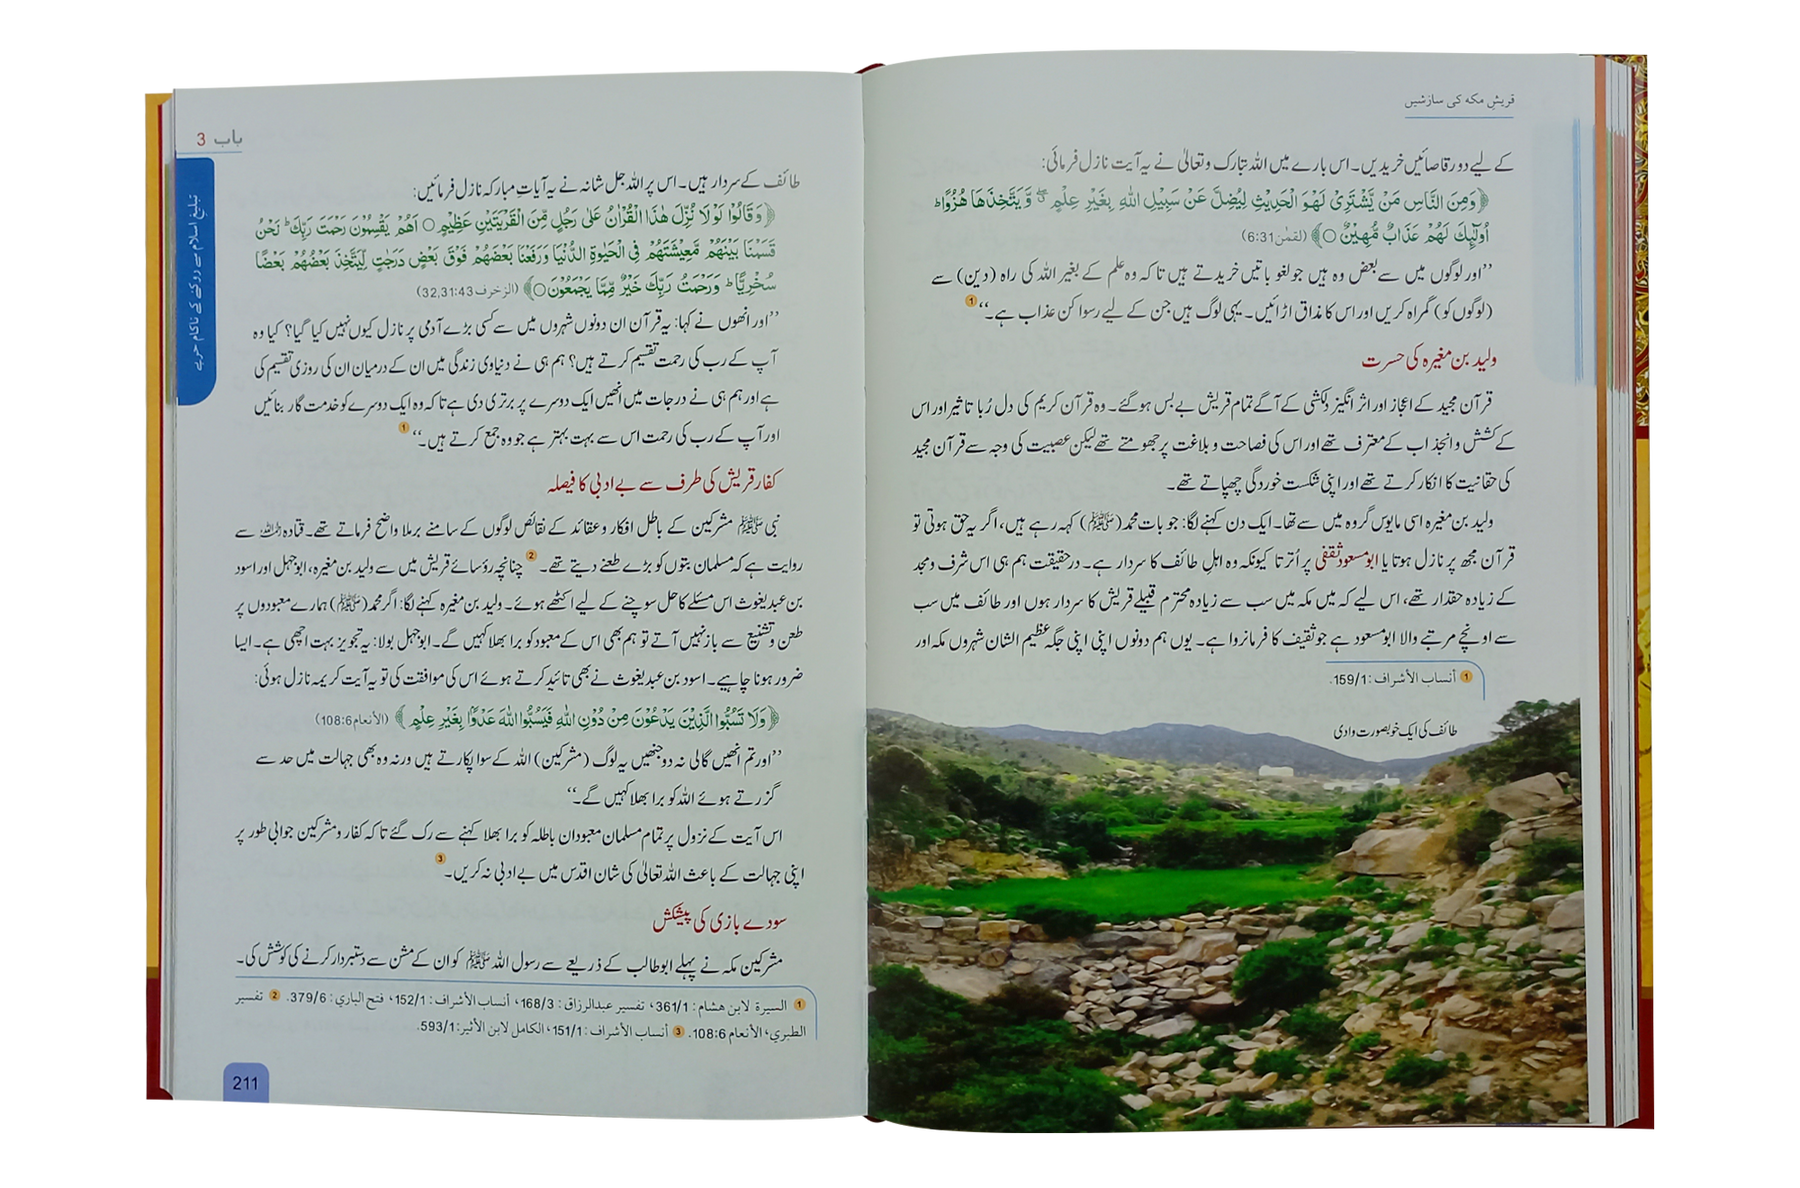 قریشِ مکہ کی سازشیں
کے لیے دو رقاصائیں خریدیں۔ اس بارے میں اللہ تبارک وتعالیٰ نے یہ آیت نازل فرمائی:
﴿وَمِنَ النَّاسِ مَنْ يَّشْتَرِيْ لَهْوَ الْحَدِيْثِ لِيُضِلَّ عَنْ سَبِيْلِ اللّٰهِ بِغَيْرِ عِلْمٍ ۖ وَّيَتَّخِذَهَا هُزُوًا ؕ
اُولٰٓئِكَ لَهُمْ عَذَابٌ مُّهِيْنٌ ○﴾ (لقمٰن 6:31)
’’اور لوگوں میں سے بعض وہ ہیں جو لغو باتیں خریدتے ہیں تاکہ وہ علم کے بغیر اللہ کی راہ (دین) سے
(لوگوں کو) گمراہ کریں اور اس کا مذاق اڑائیں۔ یہی لوگ ہیں جن کے لیے رسوا کن عذاب ہے۔‘‘ 1
ولید بن مغیرہ کی حسرت
قرآن مجید کے اعجاز اور اثر انگیز دلکشی کے آگے تمام قریش بے بس ہوگئے۔ وہ قرآن کریم کی دل رُبا تاثیر اور اس
کے کشش و انجذاب کے معترف تھے اور اس کی فصاحت و بلاغت پر جھومتے تھے لیکن عصبیت کی وجہ سے قرآن مجید
کی حقانیت کا انکار کرتے تھے اور اپنی شکست خوردگی چھپاتے تھے۔
ولید بن مغیرہ اسی مایوس گروہ میں سے تھا۔ ایک دن کہنے لگا: جو بات محمد (ﷺ) کہہ رہے ہیں، اگر یہ حق ہوتی تو
قرآن مجھ پر نازل ہوتا یا ابو مسعود ثقفی پر اُترتا کیونکہ وہ اہلِ طائف کا سردار ہے۔ درحقیقت ہم ہی اس شرف و مجد
کے زیادہ حقدار تھے، اس لیے کہ میں مکہ میں سب سے زیادہ محترم قبیلے قریش کا سردار ہوں اور طائف میں سب
سے اونچے مرتبے والا ابو مسعود ہے جو ثقیف کا فرمانروا ہے۔ یوں ہم دونوں اپنی اپنی جگہ عظیم الشان شہروں مکہ اور
1 أنساب الأشراف: 159/1.
طائف کی ایک خوبصورت وادی
باب 3
تبلیغ اسلام سے روکنے کے ناکام حربے
طائف کے سردار ہیں۔ اس پر اللہ جل شانہ نے یہ آیاتِ مبارکہ نازل فرمائیں:
﴿وَقَالُوْا لَوْلَا نُزِّلَ هٰذَا الْقُرْاٰنُ عَلٰى رَجُلٍ مِّنَ الْقَرْيَتَيْنِ عَظِيْمٍ○ اَهُمْ يَقْسِمُوْنَ رَحْمَتَ رَبِّكَ ؕ نَحْنُ
قَسَمْنَا بَيْنَهُمْ مَّعِيْشَتَهُمْ فِي الْحَيٰوةِ الدُّنْيَا وَرَفَعْنَا بَعْضَهُمْ فَوْقَ بَعْضٍ دَرَجٰتٍ لِّيَتَّخِذَ بَعْضُهُمْ بَعْضًا
سُخْرِيًّا ؕ وَرَحْمَتُ رَبِّكَ خَيْرٌ مِّمَّا يَجْمَعُوْنَ○﴾ (الزخرف 32,31:43)
’’اور انھوں نے کہا: یہ قرآن ان دونوں شہروں میں سے کسی بڑے آدمی پر نازل کیوں نہیں کیا گیا؟ کیا وہ
آپ کے رب کی رحمت تقسیم کرتے ہیں؟ ہم ہی نے دنیاوی زندگی میں ان کے درمیان ان کی روزی تقسیم کی
ہے اور ہم ہی نے درجات میں انھیں ایک دوسرے پر برتری دی ہے تاکہ وہ ایک دوسرے کو خدمت گار بنائیں
اور آپ کے رب کی رحمت اس سے بہت بہتر ہے جو وہ جمع کرتے ہیں۔‘‘ 1
کفار قریش کی طرف سے بے ادبی کا فیصلہ
نبی ﷺ مشرکین کے باطل افکار و عقائد کے نقائص لوگوں کے سامنے برملا واضح فرماتے تھے۔ قتادہ رحمہ اللہ سے
روایت ہے کہ مسلمان بتوں کو بڑے طعنے دیتے تھے۔ 2 چنانچہ رؤسائے قریش میں سے ولید بن مغیرہ، ابوجہل اور اسود
بن عبد یغوث اس مسئلے کا حل سوچنے کے لیے اکٹھے ہوئے۔ ولید بن مغیرہ کہنے لگا: اگر محمد (ﷺ) ہمارے معبودوں پر
طعن و تشنیع سے باز نہیں آتے تو ہم بھی اس کے معبود کو برا بھلا کہیں گے۔ ابوجہل بولا: یہ تجویز بہت اچھی ہے۔ ایسا
ضرور ہونا چاہیے۔ اسود بن عبد یغوث نے بھی تائید کرتے ہوئے اس کی موافقت کی تو یہ آیت کریمہ نازل ہوئی:
﴿وَلَا تَسُبُّوا الَّذِيْنَ يَدْعُوْنَ مِنْ دُوْنِ اللّٰهِ فَيَسُبُّوا اللّٰهَ عَدْوًۢا بِغَيْرِ عِلْمٍ﴾ (الأنعام 108:6)
’’اور تم انھیں گالی نہ دو جنھیں یہ لوگ (مشرکین) اللہ کے سوا پکارتے ہیں ورنہ وہ بھی جہالت میں حد سے
گزرتے ہوئے اللہ کو برا بھلا کہیں گے۔‘‘
اس آیت کے نزول پر تمام مسلمان معبودان باطلہ کو برا بھلا کہنے سے رک گئے تاکہ کفار و مشرکین جوابی طور پر
اپنی جہالت کے باعث اللہ تعالیٰ کی شان اقدس میں بے ادبی نہ کریں۔ 3
سودے بازی کی پیشکش
مشرکین مکہ نے پہلے ابو طالب کے ذریعے سے رسول اللہ ﷺ کو ان کے مشن سے دستبردار کرنے کی کوشش کی۔
1 السيرة لابن هشام: 361/1، تفسير عبدالرزاق: 168/3، أنساب الأشراف: 152/1، فتح الباري: 379/6. 2 تفسير
الطبري، الأنعام 108:6. 3 أنساب الأشراف: 151/1، الكامل لابن الأثير: 593/1.
211